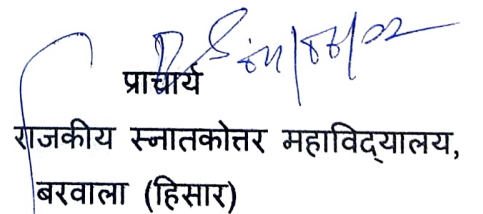 प्राचार्य
राजकीय स्नातकोत्तर महाविद्यालय,
बरवाला (हिसार)